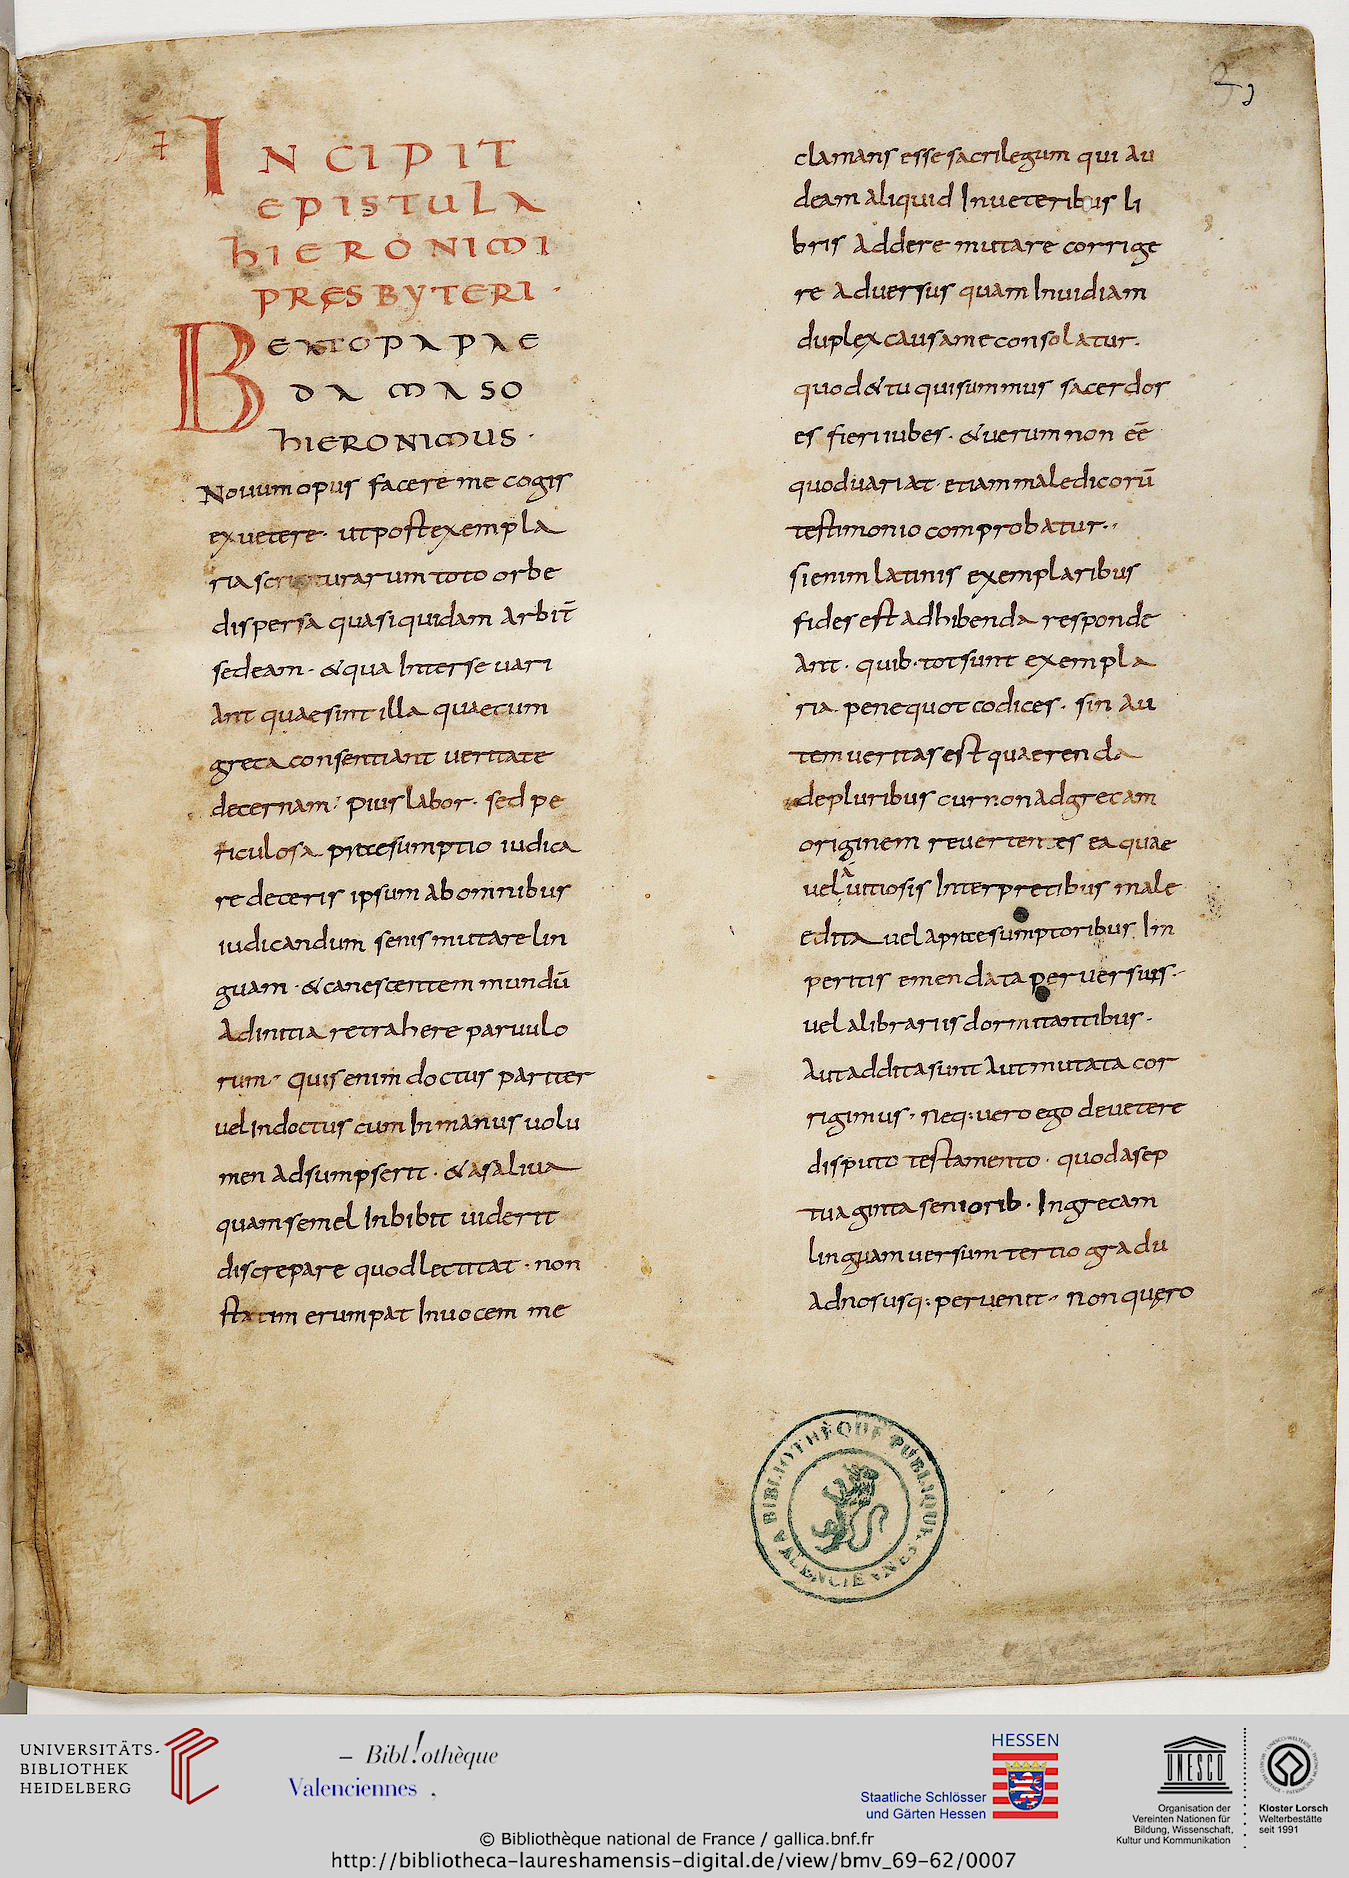 INCIPIT
EPISTULA
hIERONIMI
PRĘSBYTERI ·
BEATO PAPAE
DAMASO
hIERONIMUS ·
Nouum opus facere me cogis
ex uetere · ut post exempla
ria scripturarum toto orbe
dispersa quasi quidam arbit̄
sedeam · & qua Inter se uari
ant quae sint illa quae cum
greca consentiant ueritate
decernam · pius labor · sed pe
riculosa praesumptio iudica
re deceris ipsum ab omnibus
iudicandum senis mutare lin
guam · & canescentem mundū
ad initia retrahere paruulo
rum · quis enim doctus pariter
uel Indoctus cum In manus uolu
men adsumpserit · & a saliua
quam semel Inbibit uiderit
discrepare quod lectitat · non
statim erumpat In uocem me
clamans esse sacrilegum qui au
deam aliquid In ueteribus li
bris addere mutare corrige
re aduersus quam Inuidiam
duplex causa me consolatur ·
quod & tu qui summus sacerdos
es fieri iubes · & uerum non eē
quod uariat etiam maledicorū
testimonio comprobatur ·
si enim latinis exemplaribus
fides est adhibenda responde
ant · quib · tot sunt exempla
ria pene quot codices · sin au
tem ueritas est quaerenda
de pluribus cur non ad grecam
originem reuertentes ea quae
uel a uitiosis Interpretibus male
edita uel a praesumptoribus Im
peritis emendata peruersius ·
uel a librariis dormitantibus ·
aut addita sunt aut mutata cor
rigimus · neq: uero ego de uetere
disputo testamento · quod a sep
tuaginta seniorib · In grecam
linguam uersum tertio gradu
ad nos usq: peruenit · non quęro
BIBLIOTHÈQUE PUBLIQUE
VALENCIENNES
UNIVERSITÄTS-
BIBLIOTHEK
HEIDELBERG
– Bibl!othèque
Valenciennes ,
HESSEN
Staatliche Schlösser
und Gärten Hessen
UNESCO
Organisation der
Vereinten Nationen für
Bildung, Wissenschaft,
Kultur und Kommunikation
Kloster Lorsch
Welterbestätte
seit 1991
© Bibliothèque national de France / gallica.bnf.fr
http://bibliotheca-laureshamensis-digital.de/view/bmv_69-62/0007